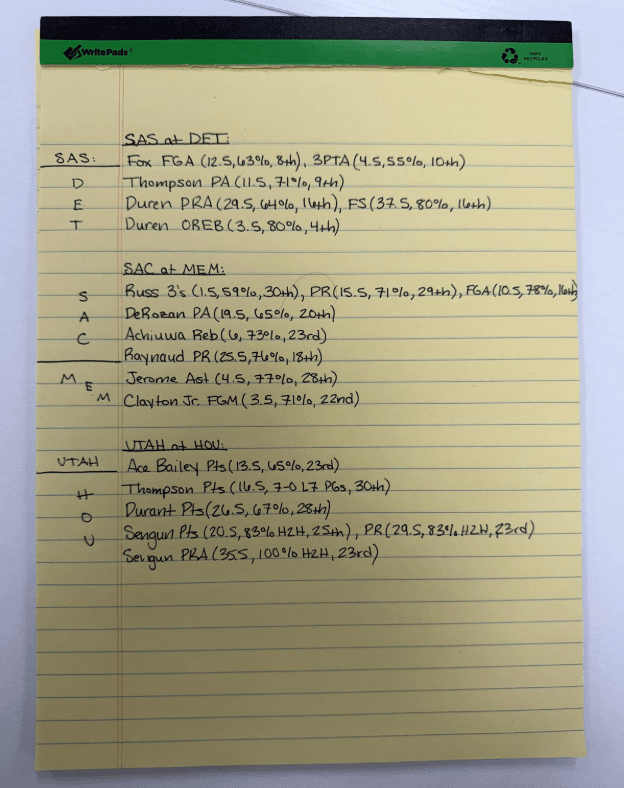 WritePads®
100% RECYCLED
SAS at DET:
SAS: Fox FGA (12.5, 63%, 8th), 3PTA (4.5, 55%, 10th)
D Thompson PA (11.5, 71%, 9th)
E Duren PRA (29.5, 64%, 16th), FS (37.5, 80%, 16th)
T Duren OREB (3.5, 80%, 4th)
SAC at MEM:
S Russ 3's (1.5, 59%, 30th), PR (15.5, 71%, 29th), FGA (10.5, 78%, 16th)
A DeRozan PA (19.5, 65%, 20th)
C Achiuwa Reb (6, 73%, 23rd)
Raynaud PR (25.5, 76%, 18th)
M E Jerome Ast (4.5, 77%, 28th)
M Clayton Jr. FGM (3.5, 71%, 22nd)
UTAH at HOU:
UTAH Ace Bailey Pts (13.5, 65%, 23rd)
H Thompson Pts (16.5, 7-0 L7 PGs, 30th)
O Durant Pts (26.5, 67%, 28th)
U Sengun Pts (20.5, 83% H2H, 25th), PR (29.5, 83% H2H, 23rd)
Sengun PRA (35.5, 100% H2H, 23rd)